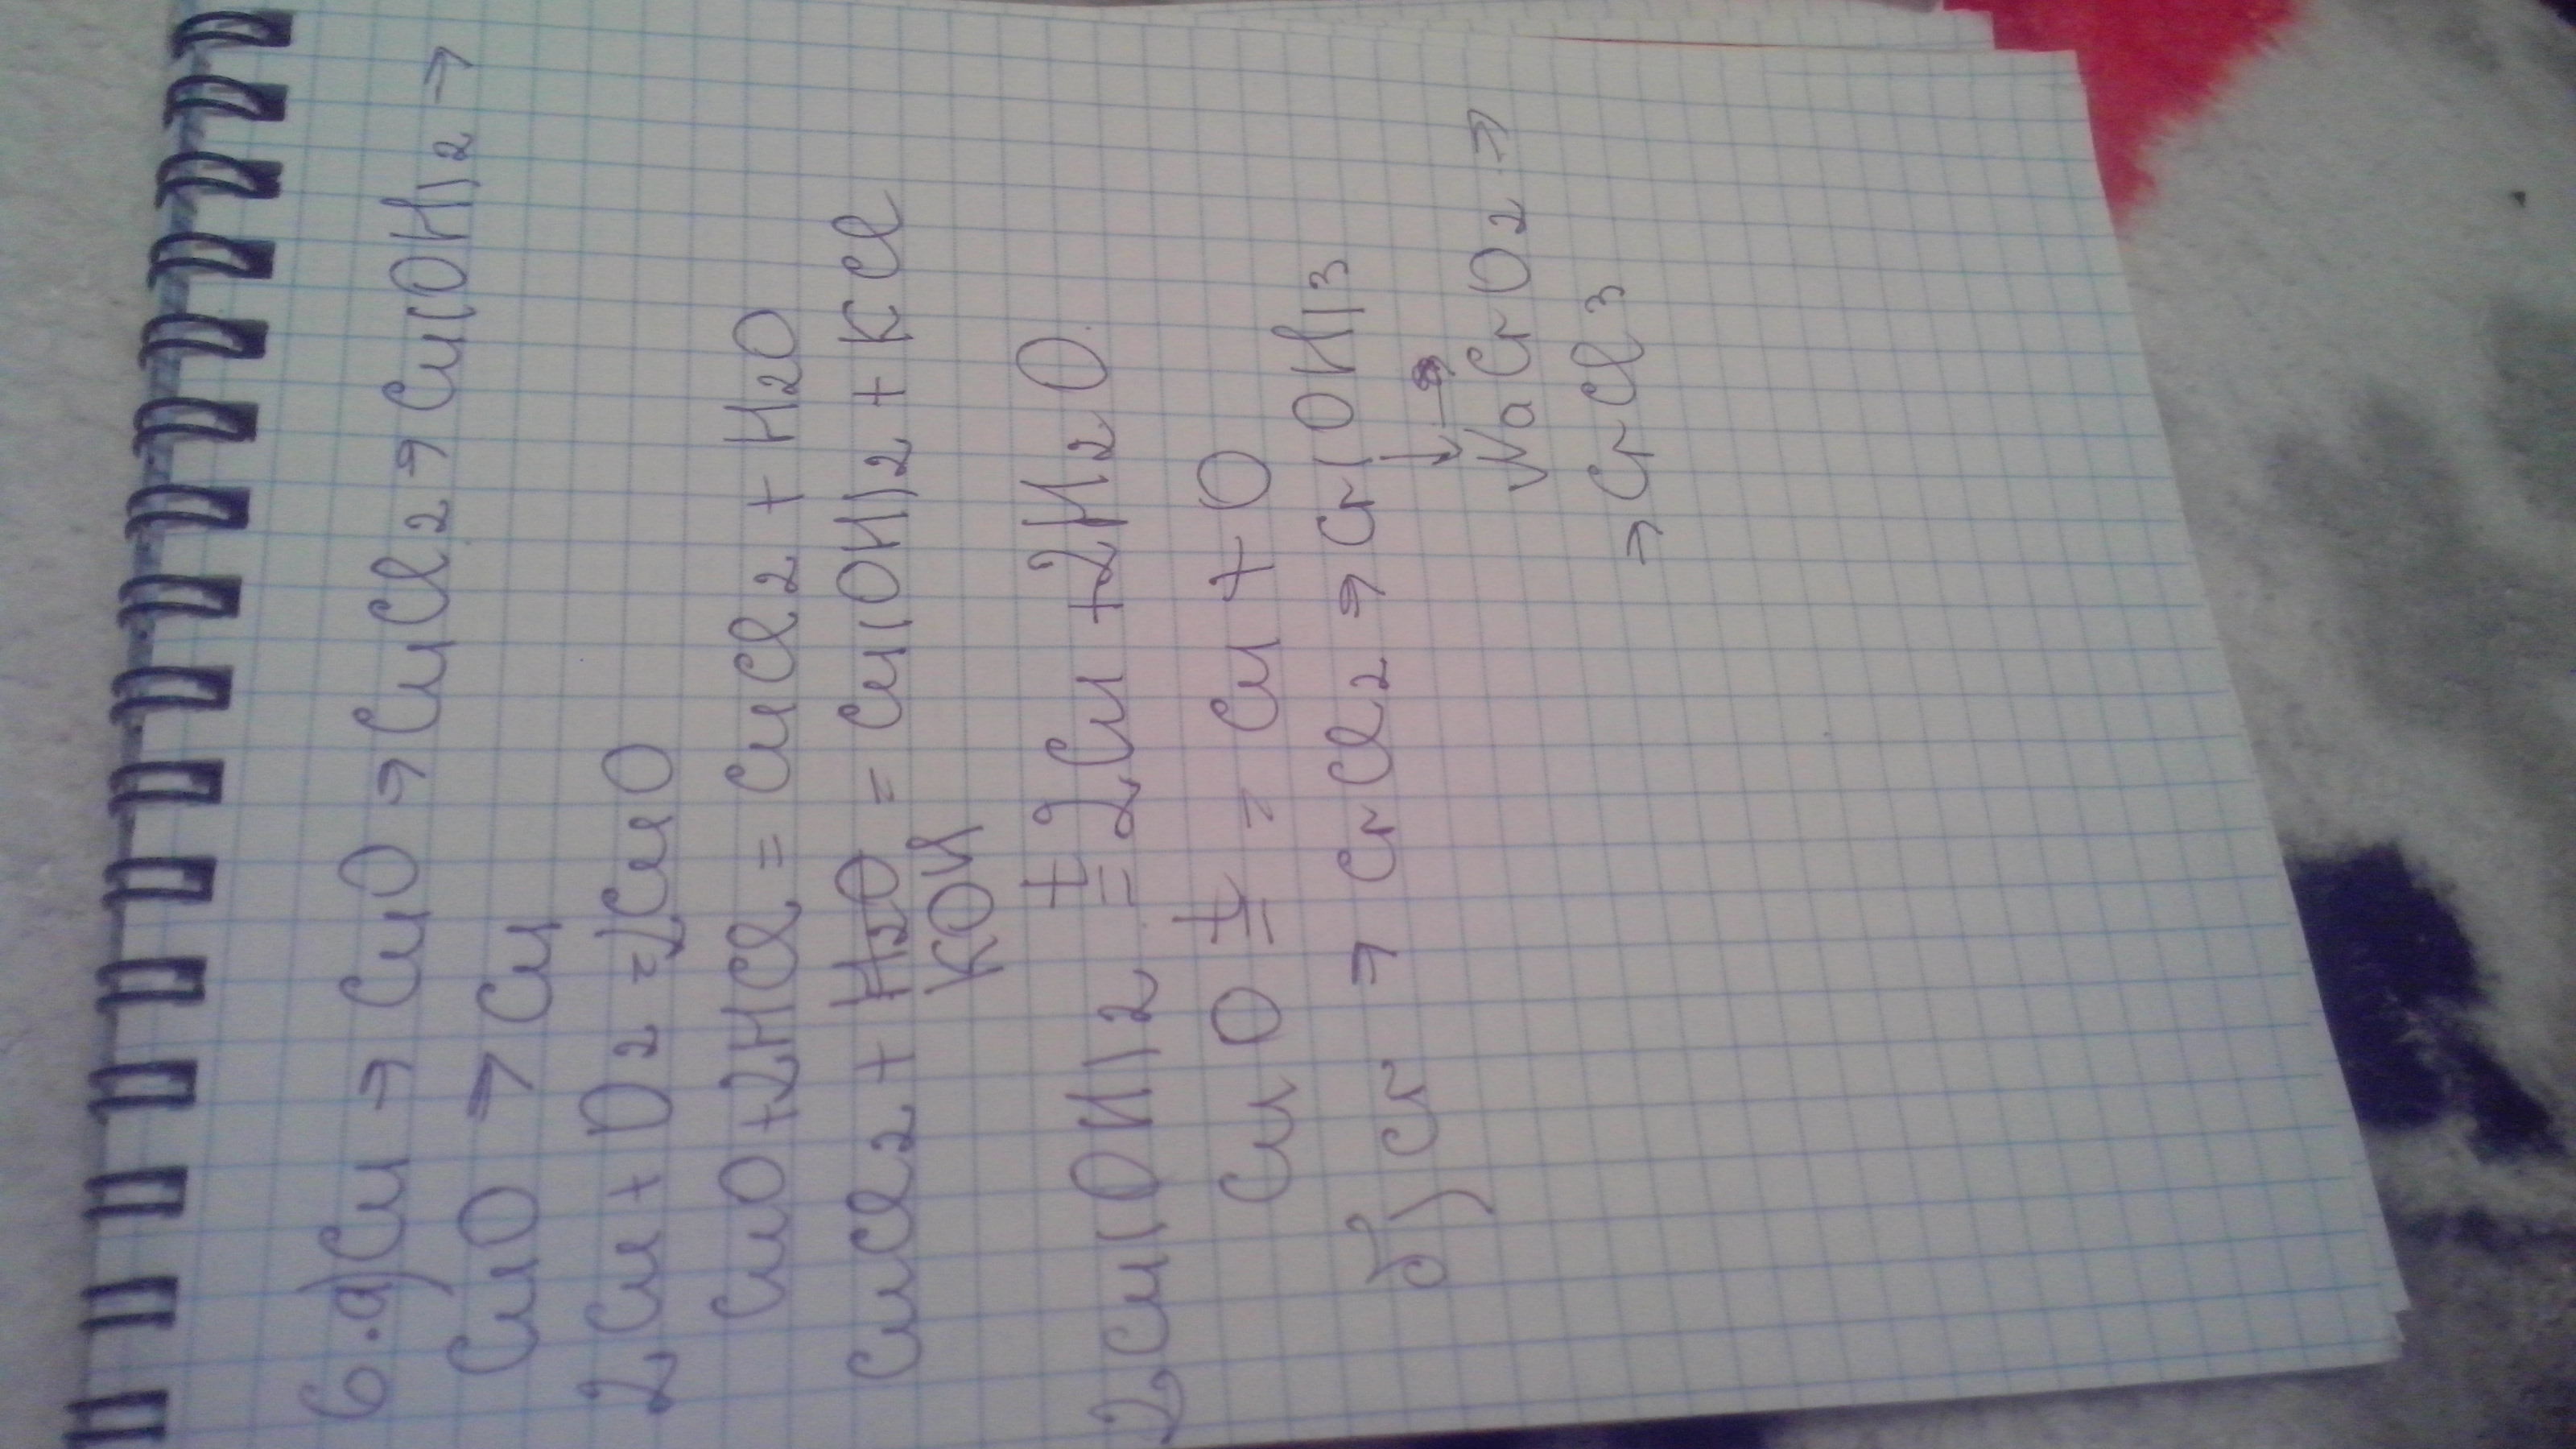 6.а) Cu → CuO → CuCl2 → Cu(OH)2 →
CuO → Cu
2Cu + O2 = 2CuO
CuO + 2HCl = CuCl2 + H2O
CuCl2 + H2O = Cu(OH)2 + KCl
KOH
t
2Cu(OH)2 = 2Cu + 2H2O
t
CuO = = Cu + O
б) Cr → CrCl2 → Cr(OH)3
↓
NaCrO2 →
→ CrCl3